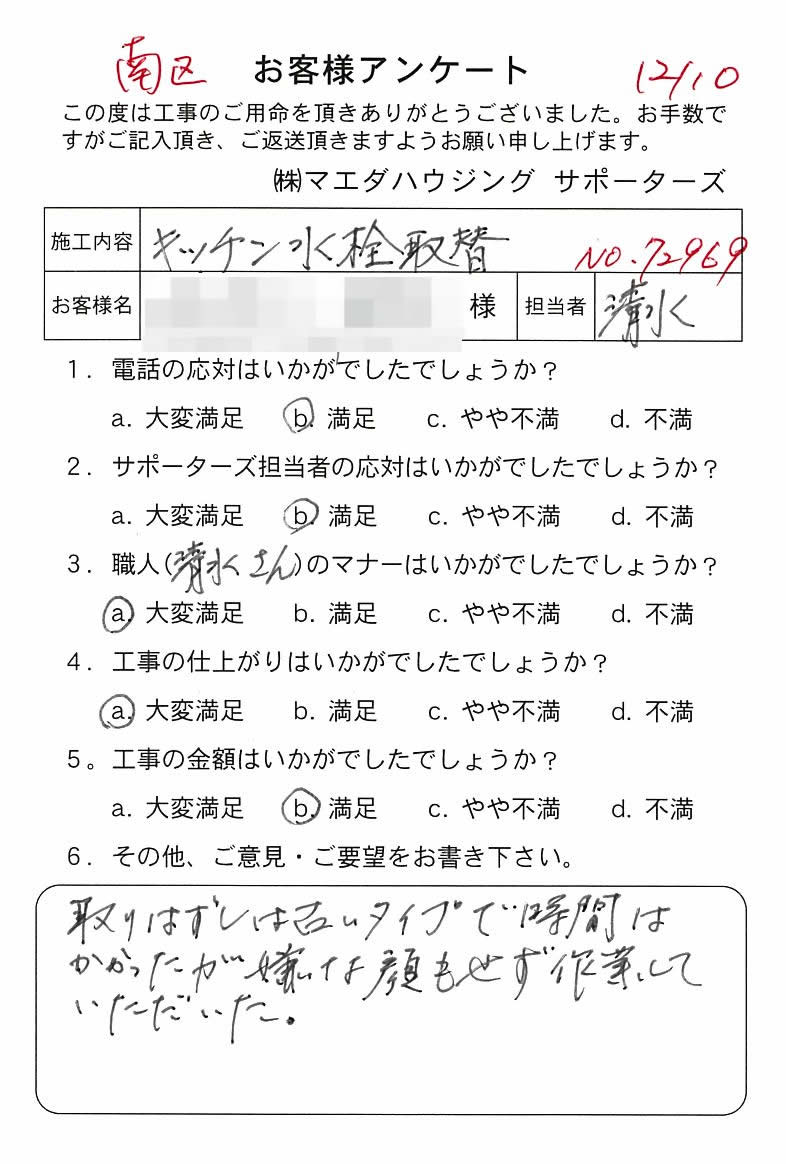 南区 お客様アンケート 12/10
この度は工事のご用命を頂きありがとうございました。お手数で
すがご記入頂き、ご返送頂きますようお願い申し上げます。
㈱マエダハウジング サポーターズ
施工内容 キッチン水栓取替 NO.72969
お客様名 様 担当者 清水
1. 電話の応対はいかがでしたでしょうか?
a. 大変満足 b. 満足 c. やや不満 d. 不満
2. サポーターズ担当者の応対はいかがでしたでしょうか?
a. 大変満足 b. 満足 c. やや不満 d. 不満
3. 職人(清水さん)のマナーはいかがでしたでしょうか?
a. 大変満足 b. 満足 c. やや不満 d. 不満
4. 工事の仕上がりはいかがでしたでしょうか?
a. 大変満足 b. 満足 c. やや不満 d. 不満
5。工事の金額はいかがでしたでしょうか?
a. 大変満足 b. 満足 c. やや不満 d. 不満
6. その他、ご意見・ご要望をお書き下さい。
取りはずしは古いタイプで時間は
かかったが嫌な顔もせず作業して
いただいた。